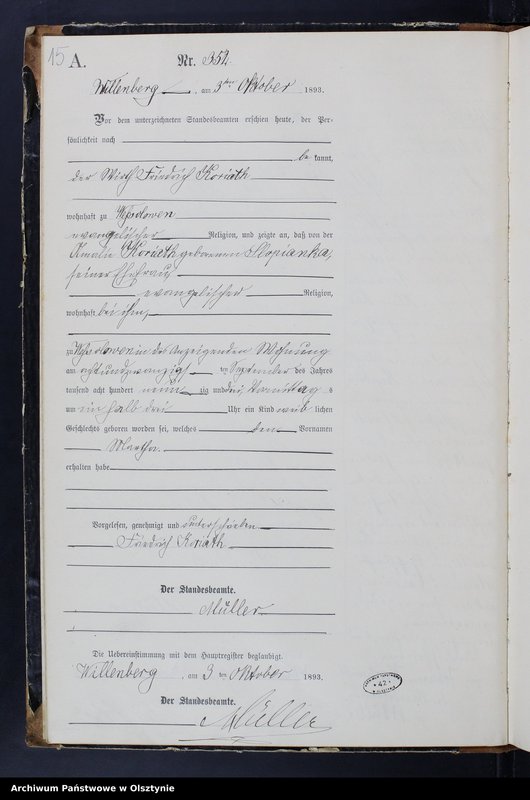 15
A.
Nr. 352.
Willenberg, am 3ten Oktober 1893.
Vor dem unterzeichneten Standesbeamten erschien heute, der Per-
sönlichkeit nach
bekannt,
der Wirth Friedrich Koriath
wohnhaft zu
evangelischer Religion, und zeigte an, daß von der
Amalie Koriath geborenen Slopianka,
seiner Ehefrau
evangelischer Religion,
wohnhaft bei ihm,
zu in des Anzeigenden Wohnung
am achtundzwanzigsten September des Jahres
tausend acht hundert neunzig und drei, Vormittags
um ein halb drei Uhr ein Kind weiblichen
Geschlechts geboren worden sei, welches den Vornamen
Martha
erhalten habe
Vorgelesen, genehmigt und unterschrieben
Friedrich Koriath
Der Standesbeamte.
Müller
Die Uebereinstimmung mit dem Hauptregister beglaubigt.
Willenberg, am 3ten Oktober 1893.
Der Standesbeamte.
Müller
42
Archiwum Państwowe w Olsztynie